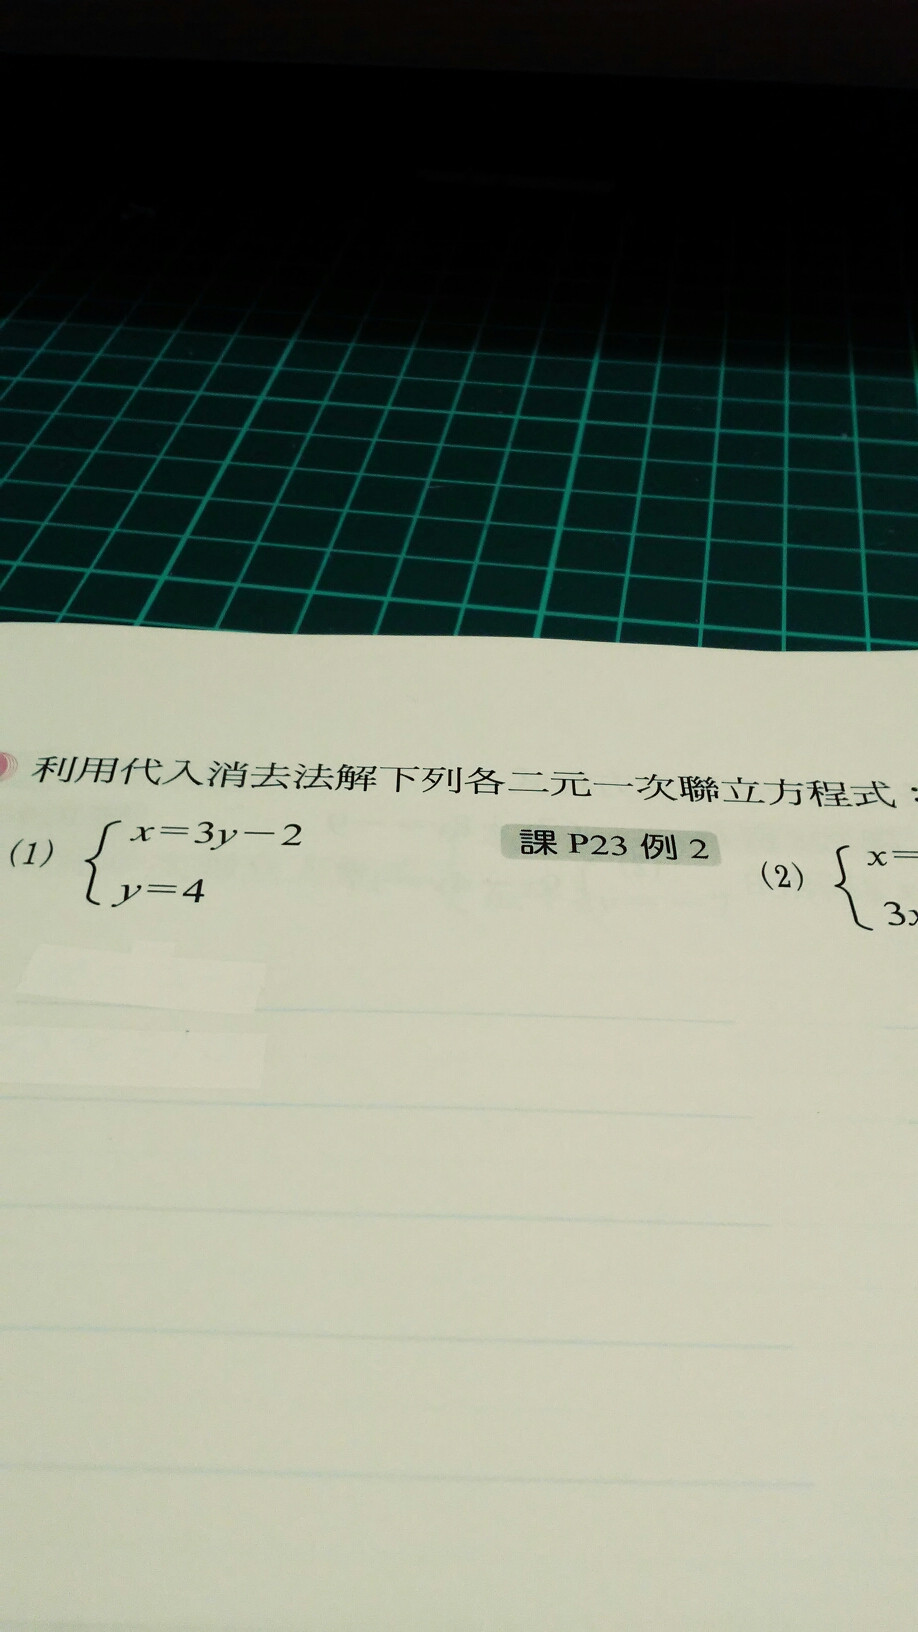 利用代入消去法解下列各二元一次聯立方程式：
(1) { x=3y-2
y=4
課 P23 例 2
(2) { x=
3x